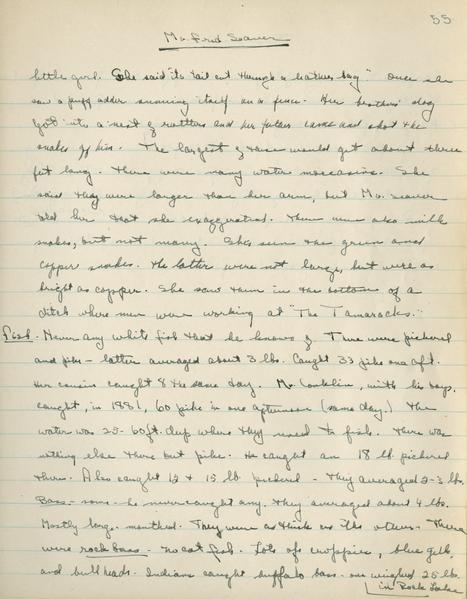 55
Mr. Fred Seaver
little girl. She said "it's tail cut through a leather bag" Once she
saw a puff adder sunning itself on a fence. Her brothers' dog
got into a nest of rattlers and her father came and shot the
snakes off him. The largest of these would get about three
feet long. There were many water moccasins. She
said they were larger than her arm, but Mr. Seaver
told her that she exaggerated. There were also milk
snakes, but not many. She's seen the green and
copper snakes. The latter were not large, but were as
bright as copper. She saw them in the bottom of a
ditch where men were working at "The Tamaracks."
Fish. Never any white fish that he knows of. There were pickerel
and pike - latter averaged about 3 lbs. Caught 33 pike one aft.
Her cousins caught 8 the same day. Mr. Conklin, with his boys,
caught, in 1881, 60 pike in one afternoon (same day.) The
water was 25-60 ft. deep where they used to fish. There was
nothing else there but pike. He caught an 18 lb. pickerel
there. Also caught 12 & 15 lb pickerel - They averaged 2-3 lbs.
Bass - some - he never caught any. They averaged about 4 lbs.
Mostly large mouthed. They were as thick as the others. There
were rock bass - no cat fish. Lots of croppies, blue gills,
and bullheads. Indians caught buffalo bass - one weighed 25 lbs.
in Rock Lake